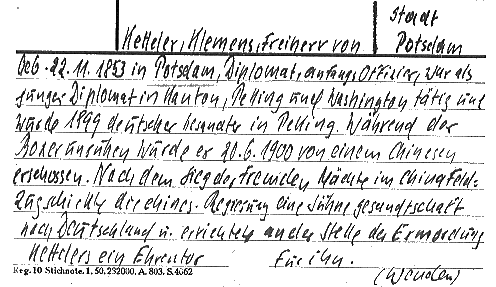 Stadt
Ketteler, Klemens, Freiherr von
Potsdam
Geb. 22.11.1853 in Potsdam, Diplomat, anfangs Offizier, war als
junger Diplomat in Kanton, Peking und Washington tätig und
wurde 1899 deutscher Gesandter in Peking. Während der
Boxerunruhen wurde er 20.6.1900 von einem Chinesen
erschossen. Nach dem Sieg der fremden Mächte im Chinafeld-
zug schickte die chines. Regierung eine Sühnegesandtschaft
nach Deutschland u. errichtete an der Stelle der Ermordung
Kettelers ein Ehrentor für ihn.
(Wenden)
Reg. 10 Stichnote. 1, 50, 232000. A. 803. S. 4662